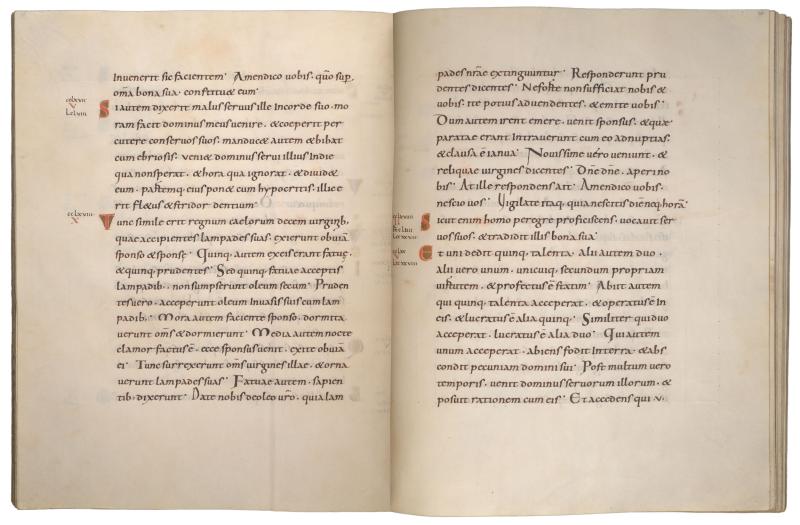 Inuenerit sic facientem. Amen dico uobis. qūo sup
om̄a bona sua. constituet eum.
Si autem dixerit malus seruus ille Incorde suo. mo
ram facit dominus meus uenire. & coeperit per
cutere conseruos suos. manduc& autem & bibat
cum ebriosis. veni& dominus serui illius Indie
qua nonsperat. & hora qua ignorat. & diuid&
eum. partemq. eius pon& cum hypocritis. illic e
rit fl&us & stridor dentium.
cclxviii
x
Tunc simile erit regnum caelorum decem uirginib.
quae accipientes lampades suas. exierunt obuiā
sponso & sponsę. Quinq. autem ex eis erant fatuę.
& quinq. prudentes. Sed quinq. fatuae acceptis
lampadib. nonsumpserunt oleum secum. Pruden
tes uero. acceperunt oleum Inuasis suis cum lam
padib. Mora autem faciente sponso. dormita
uerunt om̄s & dormierunt. Media autem nocte
clamor factus ē. ecce sponsus uenit. exite obuiā
ei. Tunc surrexerunt om̄s uirgines illae. & orna
uerunt lampades suas. Fatuae autem. sapien
tib. dixerunt. Date nobis deoleo uro. quia lam
pades nr̄ae extinguuntur. Responderunt pru
dentes dicentes. Neforte nonsufficiat nobis &
uobis. ite potius aduendentes. & emite uobis.
Dum autem irent emere. uenit sponsus. & quae
paratae erant Intrauerunt cum eo adnuptias.
& clausa ē ianua. Nouissime uero ueniunt. &
reliquae uirgines dicentes. Dn̄e dn̄e. aperi no
bis. At ille respondens ait. Amen dico uobis.
nescio uos. Vigilate itaq. quia nescitis diē neq. horā.
Sicut enim homo peregre proficiscens. uocauit ser
uos suos. & tradidit illis bona sua.
Et uni dedit quinq. talenta. alii autem duo.
alii uero unum. unicuiq. secundum propriam
uirtutem. & profectus ē statim. Abiit autem
qui quinq. talenta acceperat. & operatus ē In
eis. & lucratus ē alia quinq. Similiter qui duo
acceperat. lucratus ē alia duo. Qui autem
unum acceperat. abiens fodit Interra. & abs
condit pecuniam domini sui. Post multum uero
temporis. uenit dominus seruorum illorum. &
posuit rationem cum eis. Et accedens qui .v.